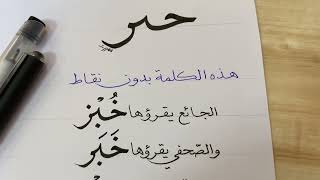 حىر
هذه الكلمة بدون نقاط
الجائع يقرؤها خُبْز
والصّحفي يقرؤها خَبَر